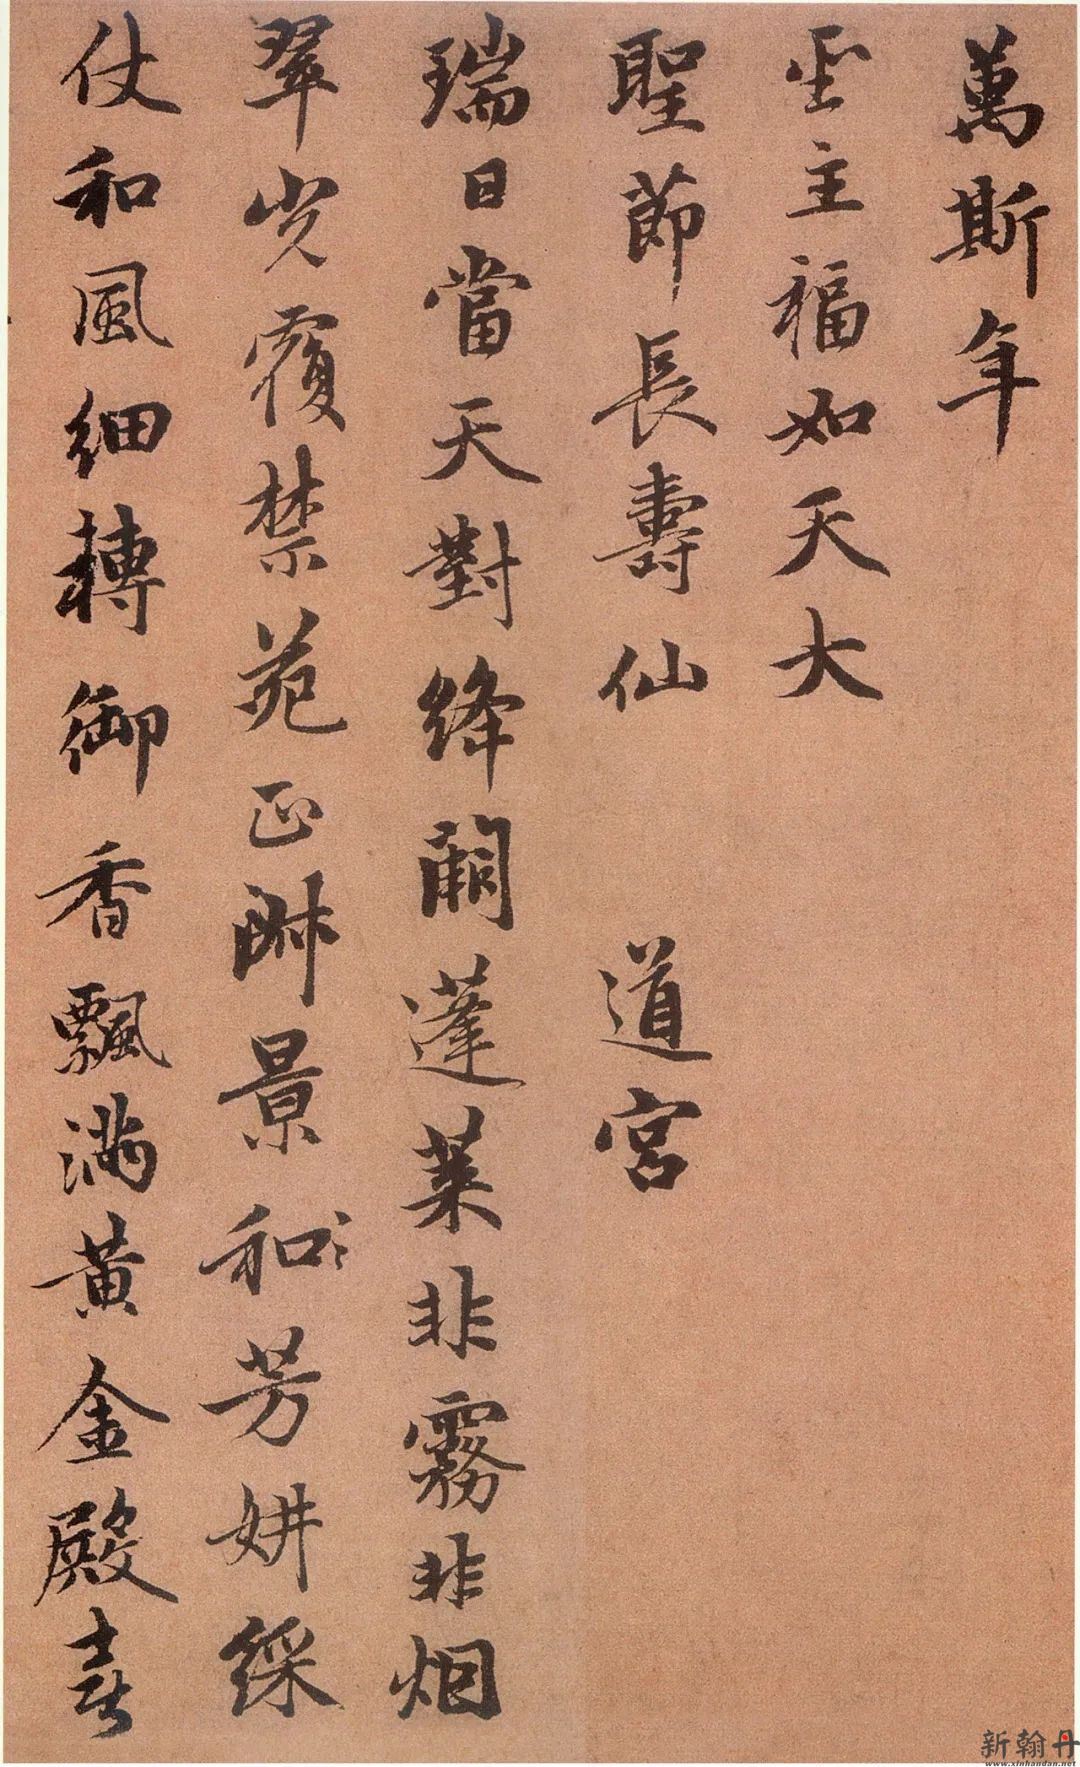 萬斯年
聖主福如天大
聖節長壽仙　道宮
瑞日當天對絳闕蓬萊非霧非烟
翠光覆禁苑正淑景和芳妍綵
仗和風細轉御香飄滿黄金殿喜
新翰丹
www.xinhandan.net